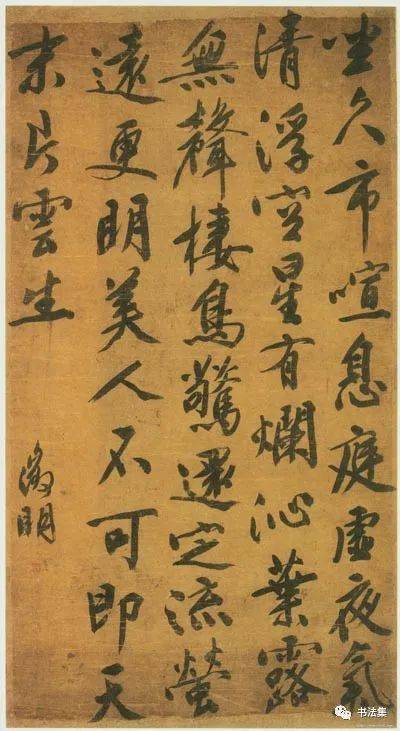 坐久市喧息庭虚夜氣
清浮空星有爛沁葉露
無聲棲鳥驚還定流螢
遠更明美人不可即天
末片雲生
徵明
书法集